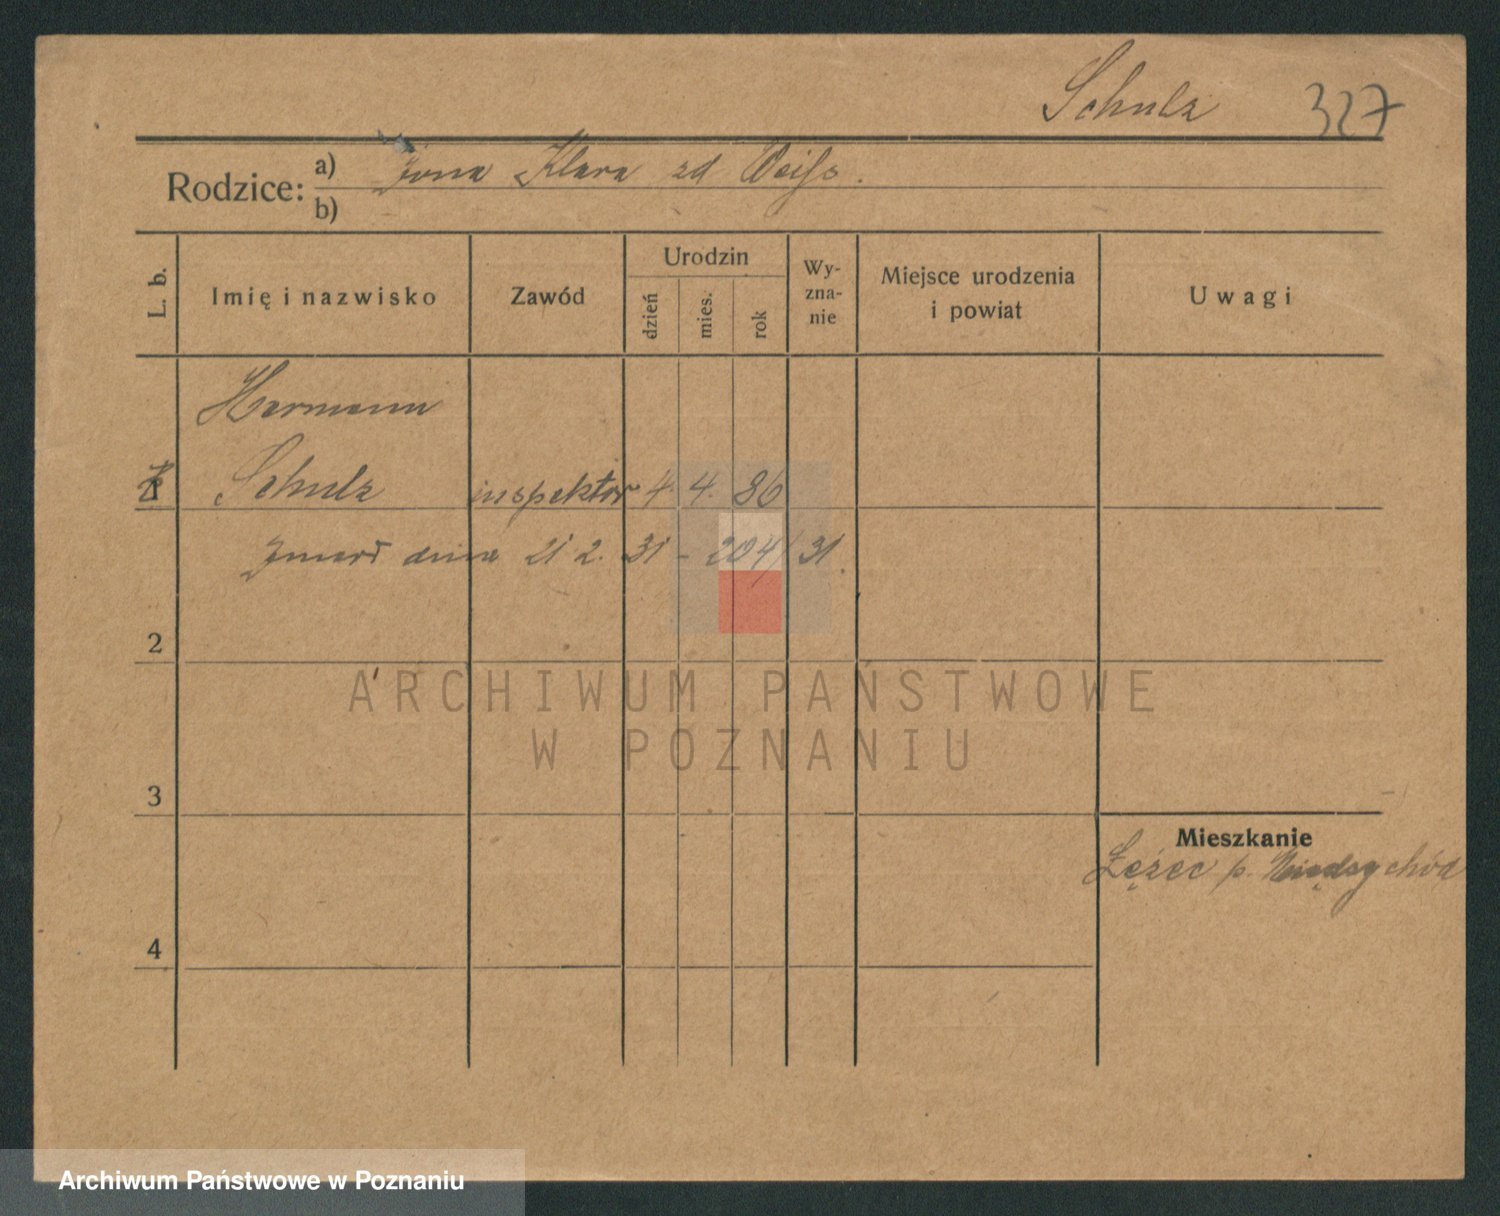 Schulz 327
Rodzice: a) Żona Klara zd Weiss.
b)
L. b. Imię i nazwisko Zawód Urodzin dzień mies. rok Wy-zna-nie Miejsce urodzenia i powiat Uwagi
Hermann
Schulz inspektor 4. 4. 86
Zmarł dnia 21 2. 31 - 204/31.
2
ARCHIWUM PAŃSTWOWE
W POZNANIU
3
Mieszkanie
Łężec p. Międzychód
4
Archiwum Państwowe w Poznaniu